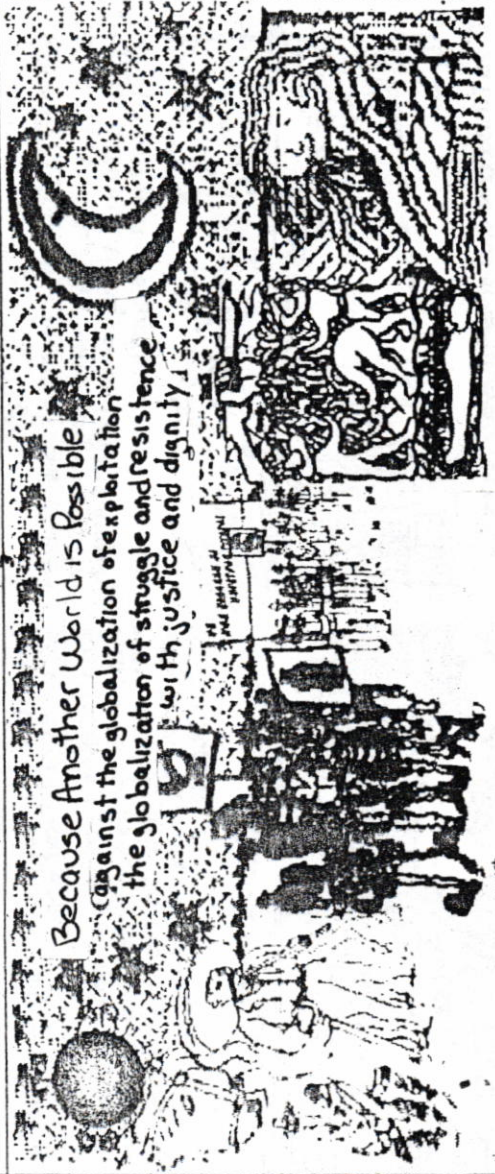 Because Another World is Possible
against the globalization of exploitation
the globalization of struggle and resistence
with justice and dignity